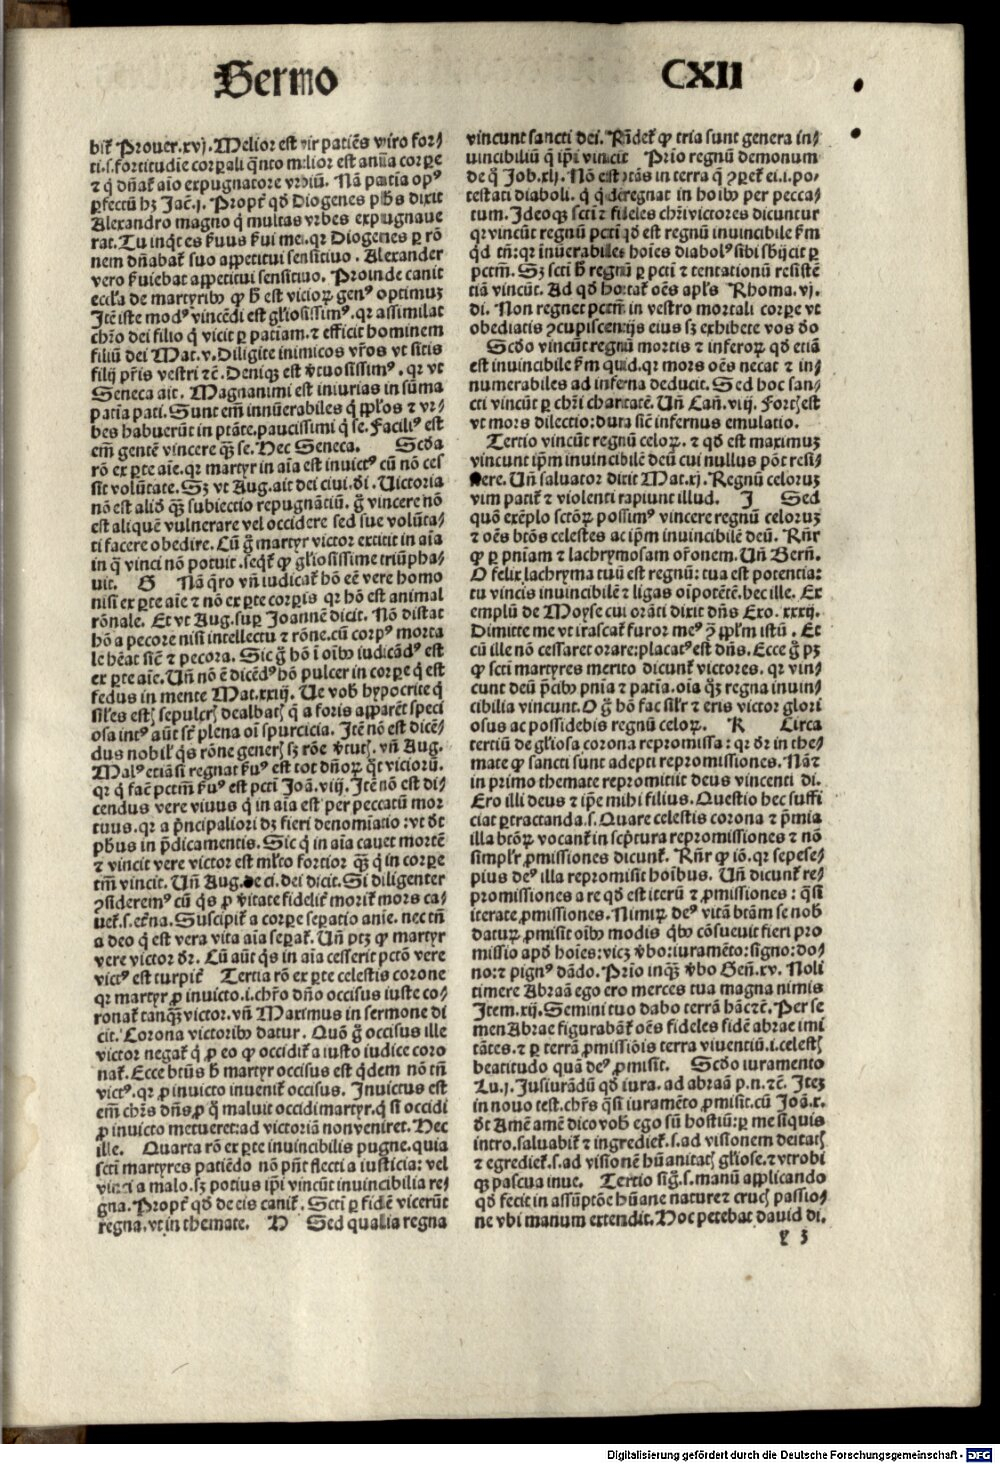 Sermo
CXII
bit᷑ Prouer.xvj. Melior est vir patiẽs viro for⸗
ti.s.fortitudie corꝑali qͣnto melior est anĩa corꝑe
⁊ q̇ dñat᷑ aĩo expugnatore vrbiũ. Nã patĩa opꝰ
ꝑfectũ hꝫ Jac̃.j. Propt̃ qḋ Diogenes ph̃s dixit
Alexandro magno q̇ multas vrbes expugnaue
rat. Tu inq̇t es ẜuus ẜui mei. qꝛ Diogenes ꝑ rõ
nem dñabat᷑ suo appetitui sensitiuo. Alexander
vero ẜuiebat appetitui sensitiuo. Proinde canit
eccl̃a de martyribꝰ ꝙ h̃ est vicioꝝ genꝰ optimuꝫ
Jtẽ iste modꝰ vincẽdi est gl̃iosissimꝰ. qꝛ assimilat
chr̃o dei filio q̇ vicit ꝑ patiam. ⁊ efficit hominem
filiũ dei Mat.v. Diligite inimicos vr̃os vt sitis
filij pr̃is vestri ⁊c̃. Deniqꝫ est v̇tuosissimꝰ. qꝛ vt
Seneca ait. Magnanimi est iniurias in sũma
patĩa pati. Sunt em̃ innũerabiles q̇ ppl̃os ⁊ vr⸗
bes habuerũt in ptãte. paucissimi q̇ se. Faciliꝰ est
em̃ gentẽ vincere qͣꝫ se. Hec Seneca. Scḋa
rõ ex ꝑte aĩe. qꝛ martyr in aĩa est inuictꝰ cũ nõ ces
sit volũtate. Sꝫ vt Aug. ait dei ciui. ḋi. Uictoria
nõ est aliḋ qͣꝫ subiectio repugnãtiũ. g̃ vincere nõ
est aliquẽ vulnerare vel occidere sed sue volũta⸗
ti facere obedire. Cũ g̃ martyr victor extitit in aĩa
in q̃ vinci nõ potuit. seqͥt᷑ ꝙ gl̃iosissime triũpha⸗
uit. G Nã q̃ro vñ iudicat᷑ hõ eẽ vere homo
nisi ex ꝑte aĩe ⁊ nõ ex ꝑte corꝑis qꝛ hõ est animal
rõnale. Et vt Aug. suꝑ Joannẽ dicit. Nõ distat
hõ a pecore nisi intellectu ⁊ rõne. cũ corpꝰ morta
le hẽat sic̃ ⁊ pecora. Sic g̃ hõ ĩ oĩbꝰ iudicãdꝰ est
ex ꝑte aĩe. Uñ nõ ẽ dicẽdꝰ hõ pulcer in corꝑe q̇ est
fedus in mente Mat.xxiij. Ue vob̃ hypocrite q̇
sil̃es estꝭ sepulcrꝭ dealbatꝭ q̃ a foris apparẽt speci
osa intꝰ aũt sr̃ plena oĩ spurcicia. Jtẽ nõ est dicẽ⸗
dus nobil̃ q̇s rõne generꝭ sꝫ rõe v̇tutꝭ. vñ Aug.
Malꝰ etiãsi regnat ẜuꝰ est tot dñoꝝ q̃t vicioꝝ.
qꝛ q̇ fac̃ pctm̃ ẜuꝰ est pctĩ Joã.viij. Jtẽ nõ est di⸗
cendus vere viuus q̇ in aĩa est per peccatũ mor
tuus. qꝛ a p̃ncipaliori dꝫ fieri denomĩatio: vt ḋt
ph̃us in p̃dicamentis. Sic q̇ in aĩa cauet mortẽ
⁊ vincit vere victor est ml̃to fortior qͣꝫ q̇ in corꝑe
tm̃ vincit. Uñ Aug. de ci. dei dicit. Si diligenter
ꝯsideremꝰ cũ q̇s ꝓ v̇itate fidelit᷑ morit᷑ mors ca⸗
uet᷑. s. et̃na. Suscipit᷑ a corꝑe seꝑatio anĩe. nec tñ
a deo q̇ est vera vita aĩa seꝑat᷑. Uñ ptꝫ ꝙ martyr
vere victor dr̃. Cũ aũt q̇s in aĩa cesserit pctõ vere
victꝰ est turpit᷑ Tertia rõ ex ꝑte celestis corone
qꝛ martyr ꝓ inuicto.i.chr̃o dño occisus iuste co⸗
ronat᷑ tanqͣꝫ victor. vñ Maximus in sermone di
cit. Corona victoribꝰ datur. Quõ g̃ occisus ille
victor negat᷑ q̇ ꝓ eo q̇ occidit᷑ a iusto iudice coro
nat᷑. Ecce btũs h̃ martyr occisus est q̇dem nõ tñ
victꝰ. qꝛ ꝓ inuicto inuenit᷑ occisus. Jnuictus est
em̃ chr̃s dñs. ꝓ q̇ maluit occidi martyr. q̇ si occidi
ꝓ inuicto metueret: ad victoriã non veniret. Hec
ille. Quarta rõ ex ꝑte inuincibilis pugne. quia
sctĩ martyres patiẽdo nõ pñt flecti a iusticia: vel
vinci a malo. sꝫ potius ip̃i vincũt inuincibilia re⸗
gna. Propt̃ qḋ de eis canit᷑. Sctĩ ꝑ fidẽ vicerũt
regna. vt in themate. H Sed qualia regna
vincunt sancti dei. Rñdet᷑ ꝙ tria sunt genera in⸗
uincibiliũ q̃ ip̃i vincũt Prĩo regnũ demonum
de q̃ Job.xlj. Nõ est ptãs in terra q̃ ꝯparet᷑ ei.i.po⸗
testati diaboli. q̇ q̇dẽ regnat in hoĩbꝰ per pecca⸗
tum. Jdeoqꝫ sctĩ ⁊ fideles chr̃i victores dicuntur
qꝛ vincũt regnũ pctĩ qḋ est regnũ inuincibile ẜm
q̇d tñ: qꝛ ĩnũerabiles hoĩes diabolꝰ sibi sb̃ijcit ꝑ
pctm̃. Sꝫ sctĩ h̃ regnũ ꝑ pctĩ ⁊ tentationũ resistẽ
tiã vincũt. Ad qḋ hortat᷑ oẽs apl̃s Rhoma.vj.
di. Non regnet pctm̃ in vestro mortali corꝑe vt
obediatis ꝯcupiscentijs eius sꝫ exhibete vos ḋo
Scḋo vincũt regnũ mortis ⁊ inferoꝝ qḋ etiã
est inuincibile ẜm quid. qꝛ mors oẽs necat ⁊ in⸗
numerabiles ad inferna deducit. Sed hoc san⸗
cti vincũt ꝑ chr̃i charitatẽ. Uñ Cañ.viij. Fortꝭ est
vt mors dilectio: dura sic̃ infernus emulatio.
Tertio vincũt regnũ celoꝝ. ⁊ qḋ est maximuꝫ
vincunt ip̃m inuincibilẽ deũ cui nullus põt resi⸗
stere. Uñ saluator dicit Mat.xj. Regnũ celoruꝫ
vim patit᷑ ⁊ violenti rapiunt illud. J Sed
quõ exẽplo sctõꝝ possimꝰ vincere regnũ celoruꝫ
⁊ oẽs btõs celestes ac ip̃m inuincibilẽ deũ. Rñr
ꝙ ꝑ pñiam ⁊ lachrymosam or̃onem. Uñ Berñ.
O felix lachryma tuũ est regnũ: tua est potentia:
tu vincis inuincibilẽ ⁊ ligas oĩpotẽtẽ. hec ille. Ex
emplũ de Moyse cui orãti dixit dñs Exo.xxxij.
Dimitte me vt irascat᷑ furor meꝰ ꝯ̃ ppl̃m istũ. Et
cũ ille nõ cessaret orare: placatꝰ est dñs. Ecce g̃ pꝫ
ꝙ sctĩ martyres merito dicunt᷑ victores. qꝛ vin⸗
cunt deũ p̃cibꝰ pñia ⁊ patĩa. oĩa qͣꝫ regna inuin⸗
cibilia vincunt. O g̃ hõ fac sil̃r ⁊ eris victor glori
osus ac possidebis regnũ celoꝝ. K Circa
tertiũ de gl̃iosa corona repromissa: qꝛ dr̃ in the⸗
mate ꝙ sancti sunt adepti repromissiones. Nã ⁊
in primo themate repromittit deus vincenti di.
Ero illi deus ⁊ ip̃e mihi filius. Questio hec suffi
ciat ꝑtractanda. s. Quare celestis corona ⁊ p̃mia
illa btõꝝ vocant᷑ in scp̃tura repromissiones ⁊ nõ
simpl̃r ꝓmissiones dicunt᷑. Rñr ꝙ iõ. qꝛ sepese⸗
pius deꝰ illa repromisit hoĩbus. Uñ dicunt᷑ re⸗
promissiones a re qḋ est iterũ ⁊ ꝓmissiones: qͣsi
iterate ꝓmissiones. Nimiꝝ deꝰ vitã btãm se nob̃
daturꝝ ꝓmisit oĩbꝰ modis qͥbꝰ cõsueuit fieri pro
missio apḋ hoĩes: vicꝫ v̇bo: iuramẽto: signo: do⸗
no: ⁊ pignꝰ dãdo. Prĩo inqͣꝫ v̇bo Geñ.xv. Noli
timere Abraã ego ero merces tua magna nimis
Jtem.xij. Semini tuo dabo terrã hãc ⁊c̃. Per se
men Abrae figurabãt᷑ oẽs fideles fidẽ abrae imi
tãtes. ⁊ ꝑ terrã ꝓmissiõis terra viuentiũ.i.celestꝭ
beatitudo quã deꝰ ꝓmisit. Scḋo iuramento
Lu.j. Jusiurãdũ qḋ iura. ad abraã p.n.⁊c̃. Jteꝫ
in nouo test. chr̃s qͣsi iuramẽto ꝓmisit. cũ Joã.x.
ḋt Amẽ amẽ dico vob̃ ego sũ hostiũ: ꝑ me si quis
intro. saluabit᷑ ⁊ ingrediet᷑. s. ad visionem deitatꝭ
⁊ egrediet᷑. s. ad visionẽ hũanitatꝭ gl̃iose. ⁊ vtrobi
qꝫ pascua inue. Tertio sig̃.s. manũ applicando
qḋ fecit in assũptõe hũane nature ⁊ crucꝭ passio⸗
ne vbi manum extendit. Hoc petebat dauid di.
y 3
Digitalisierung gefördert durch die Deutsche Forschungsgemeinschaft - DFG